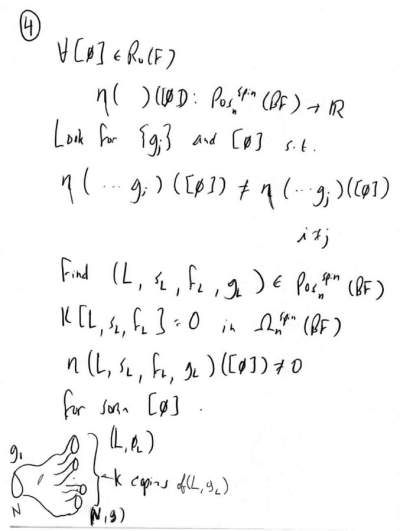 ④
∀[ø] ∈ R₀(F)
η( )([ø]): Posₙ^spin(BF) → ℝ
Look for {gⱼ} and [ø] s.t.
η(… gᵢ)([ø]) ≠ η(… gⱼ)([ø])
i≠j
Find (L, s_L, f_L, g_L) ∈ Posₙ^spin(BF)
K[L, s_L, f_L] = 0 in Ωₙ^spin(BF)
η(L, s_L, f_L, g_L)([ø]) ≠ 0
for som [ø].
g₁
(L, g_L)
k copies of (L, g_L)
N
(N, g)